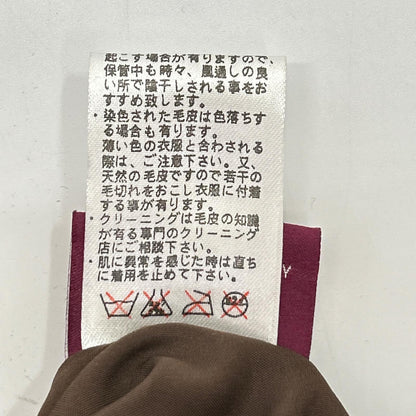 起こす場合が有りますので、
保管中も時々、風通しの良
い所で陰干しされる事をお
すすめ致します。
・染色された毛皮は色落ちす
る場合も有ります。
薄い色の衣服と合わされる
際は、ご注意下さい。又、
天然の毛皮ですので若干の
毛切れをおこし衣服に付着
する事が有ります。
・クリーニングは毛皮の知識
が有る専門のクリーニング
店にご相談下さい。
・肌に異常を感じた時は直ち
に着用を止めて下さい。
Y